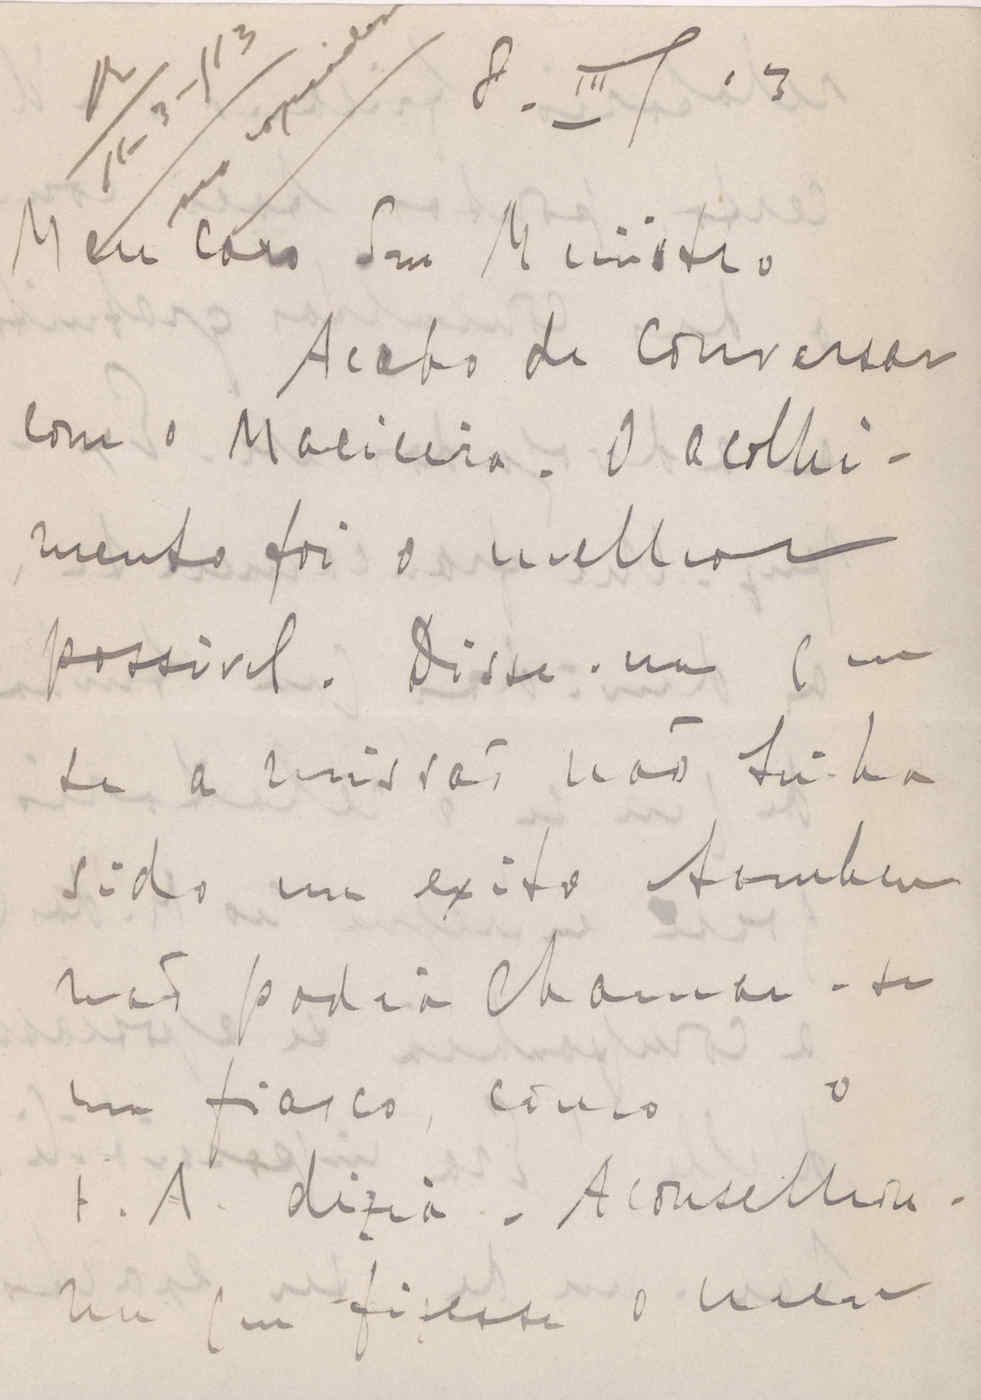 R
11-3-913
8.III/13
Meu caro Snr Ministro
Acabo de conversar
com o Macieira. O acolhi-
mento foi o melhor
possivel. Disse-me que
se a missão não tinha
sido um exito tambem
não podia chamar-se
um fiasco, como o
F. A. dizia. Aconselhou-
me que fizesse o meu